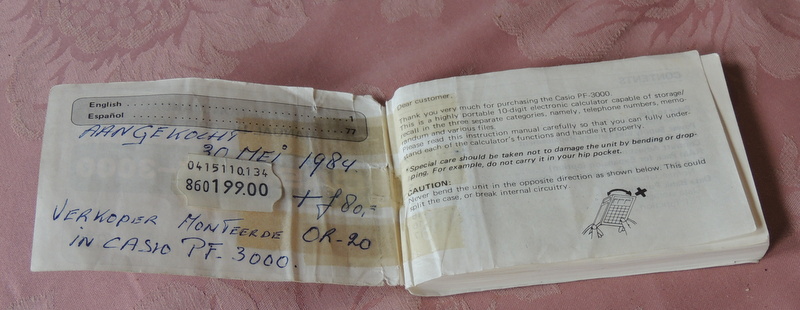 English 1
Español 77
AANGEKOCHT
30 MEI 1984
0415110.134
860199.00
+ f 80,=
VERKOPER MONTEERDE OR-20
IN CASIO PF-3000.
Dear customer,
Thank you very much for purchasing the Casio PF-3000.
This is a highly portable 10-digit electronic calculator capable of storage/
recall in the three separate categories, namely, telephone numbers, memo-
randum and various files.
Please read this instruction manual carefully so that you can fully under-
stand each of the calculator's functions and handle it properly.
* Special care should be taken not to damage the unit by bending or drop-
ping. For example, do not carry it in your hip pocket.
CAUTION:
Never bend the unit in the opposite direction as shown below. This could
split the case, or break internal circuitry.